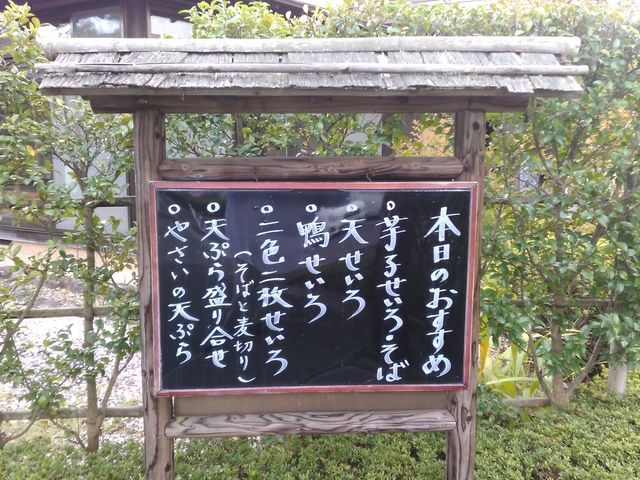 本日のおすすめ
○芋るせいろ・そば
○天せいろ
○鴨せいろ
○二色二枚せいろ
(そばと麦切り)
○天ぷら盛り合せ
○やさいの天ぷら